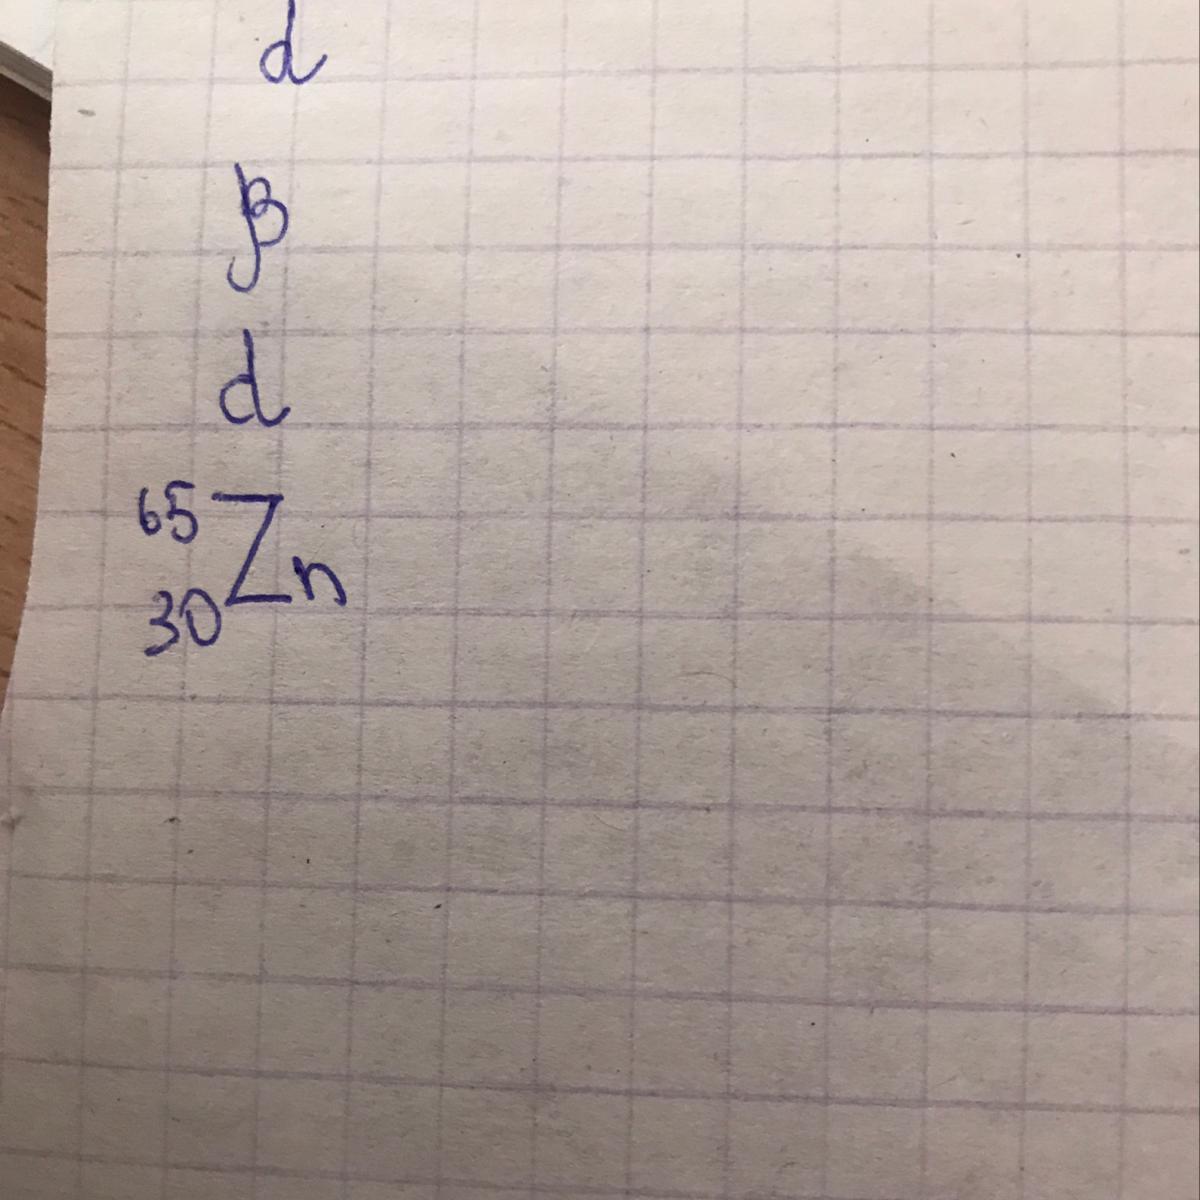 d
β
d
65
Zn
30